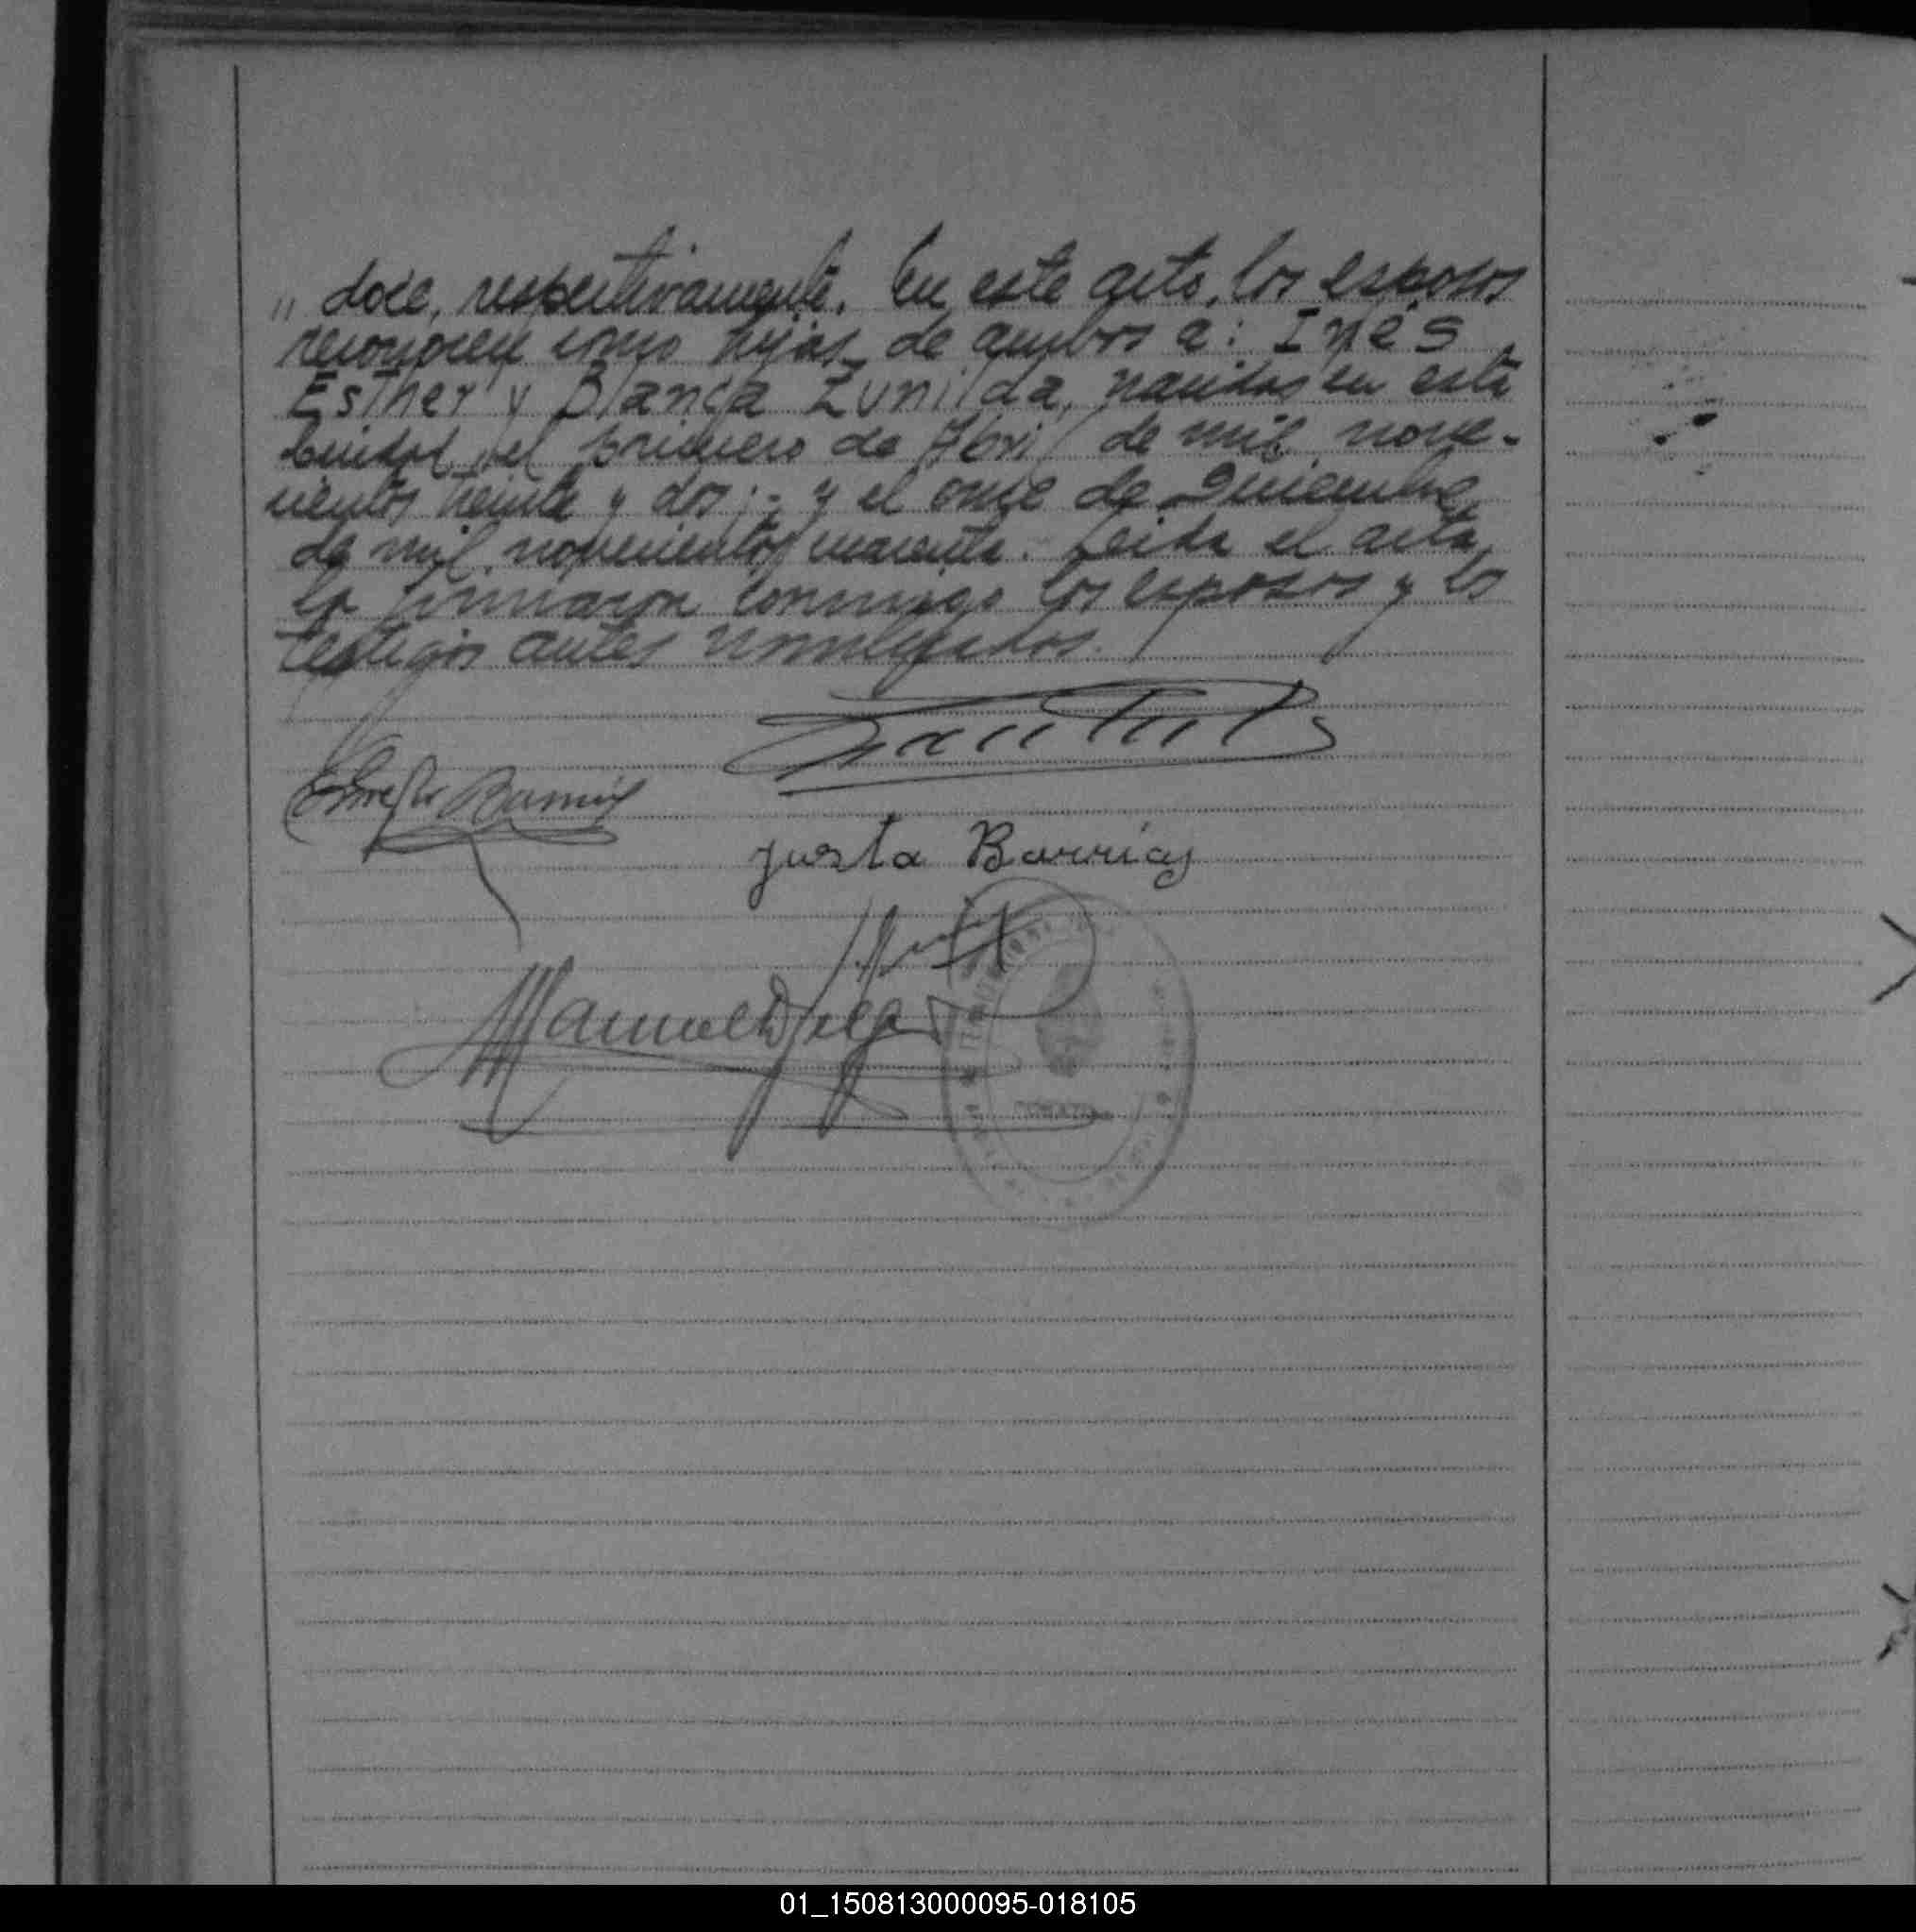 „ doce, respectivamente. En este acto, los esposos
reconocen como hijas de ambos a: Inés
Esther y Blanca Zunilda, nacidas en esta
Ciudad, el primero de Abril de mil nove-
cientos treinta y dos;- y el once de Diciembre
de mil novecientos cuarenta. Leida el acta,
la firmaron conmigo los esposos y los
testigos antes nombrados.
Justa Barrias
Manuel
01_150813000095-018105